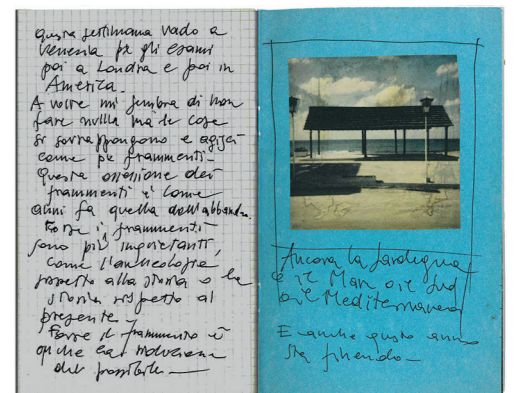 questa settimana vado a
Venezia per gli esami
poi a Londra e poi in
America.
A volte mi sembra di non
fare nulla ma le cose
si sovrappongono e agisci
come per frammenti -
Questa ossessione dei
frammenti è come
anni fa quella dell'abbandono.
Forse i frammenti
sono più importanti,
come l'archeologia
rispetto alla storia o la
storia rispetto al
presente -
Forse il frammento è
anche la
del possibile -
Ancora la Sardegna
e il Mare o il Sud
o il Mediterraneo
E anche questo anno
sta finendo -